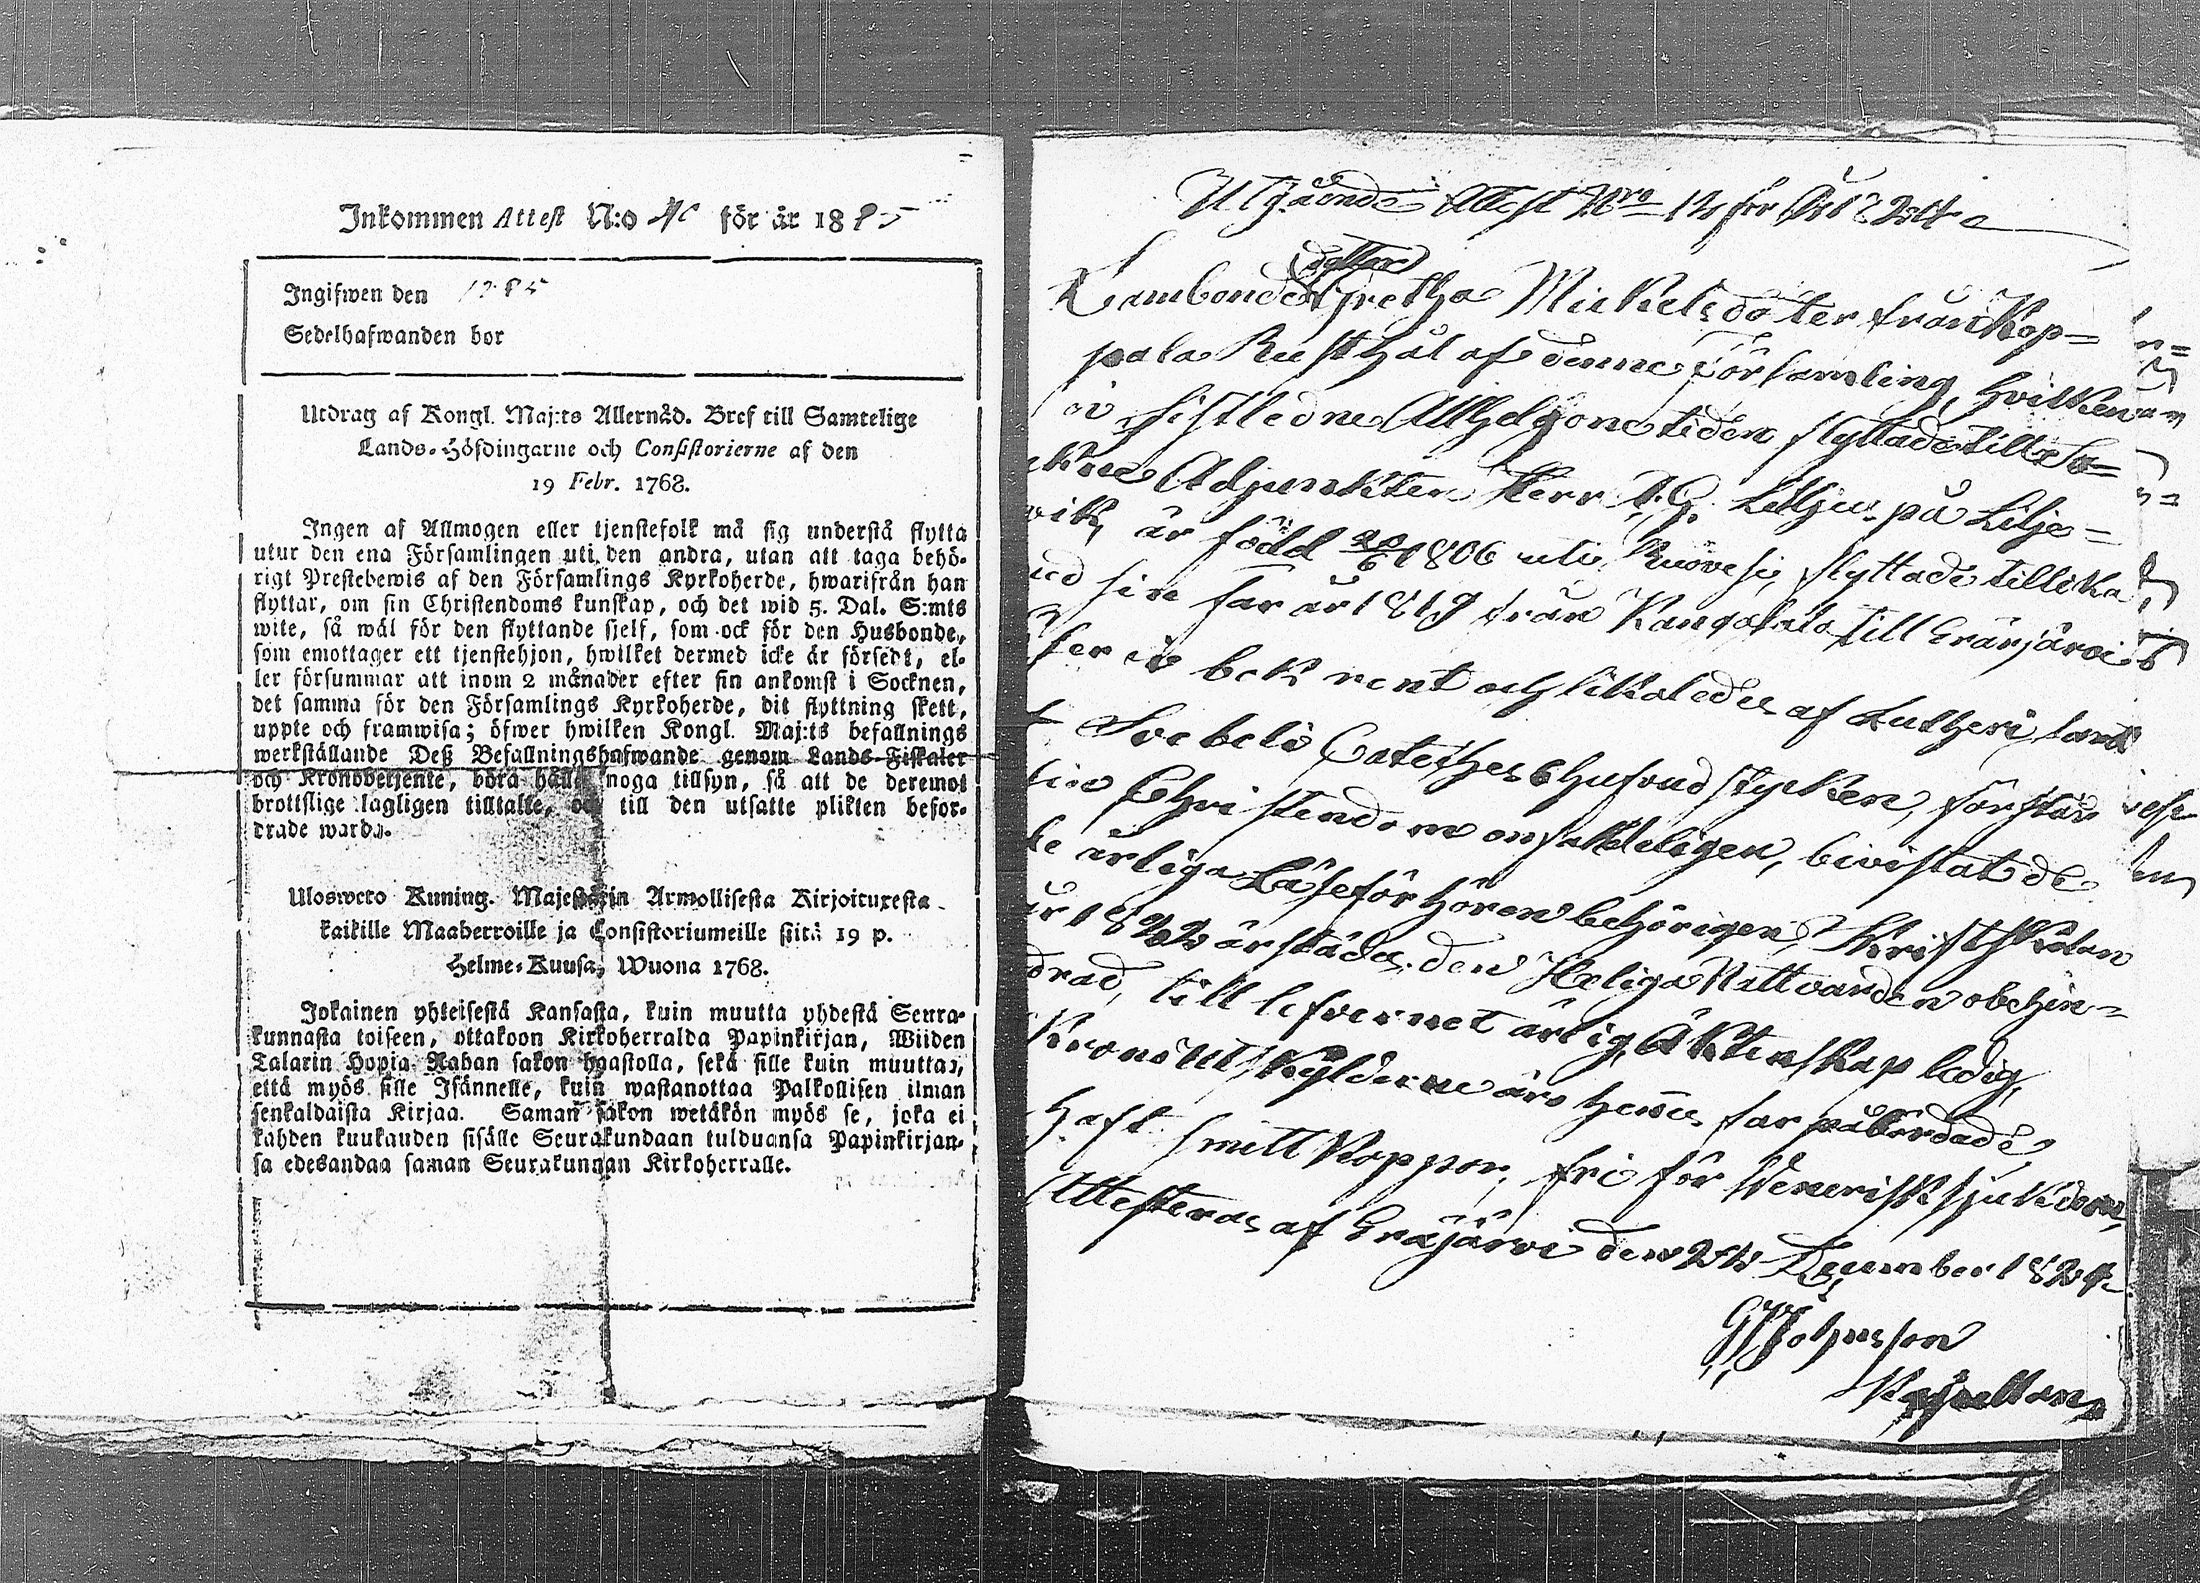 Inkommen Attest N:o för år 18
Ingifwen den
Sedelhafwanden bor
Utdrag af Kongl. Maj:ts Allernåd. Bref till Samtelige
Lands-Höfdingarne och Consistorierne af den
19 Febr. 1768.
Ingen af Allmogen eller tjenstefolk må sig understå flytta
utur den ena Församlingen uti den andra, utan att taga behö-
rigt Prestebewis af den Församlings Kyrkoherde, hwarifrån han
flyttar, om sin Christendoms kunskap, och det wid 5. Dal. S:mts
wite, så wäl för den flyttande sjelf, som ock för den Husbonde,
som emottager ett tjenstehjon, hwilket dermed icke är försedt, el-
ler försummar att inom 2 månader efter sin ankomst i Socknen,
det samma för den Församlings Kyrkoherde, dit flyttning skett,
uppte och framwisa; öfwer hwilken Kongl. Maj:ts befallnings
werkställande Deß Befallningshafwande genom Lands-Fiskaler
och Kronobetjente, böra hålla noga tillsyn, så att de deremot
brottslige lagligen tilltalte, och till den utsatte plikten befor-
drade warda.
Ulosweto Kuning. Majestätin Armollisesta Kirjoituxesta
kaikille Maaherroille ja Consistoriumeille siitä 19 p.
Helme-Kuusa, Wuona 1768.
Jokainen yhteisestä Kansasta, kuin muutta yhdestä Seura-
kunnasta toiseen, ottakoon Kirkoherralda Papinkirjan, Wiiden
Talarin Hopia-Rahan sakon haastolla, sekä sille kuin muuttaa,
että myös sille Isännelle, kuin wastanottaa Palkollisen ilman
senkaldaista Kirjaa. Saman sakon wetäkön myös se, joka ei
kahden kuukauden sisälle Seurakundaan tulduansa Papinkirjan-
sa edesandaa saman Seurakunnan Kirkoherralle.
Utgående Attest Nro 12 för År 1824
dotter
Lambonde Gretha Mickelsdoter från Kop=
pala Rusthål af denne Församling, hvilken
sistledne Allhelgonetiden flyttade till So=
Adjunkten Herr A. G. Lilljus på Lilje=
vik, är född 20/6 1806 uti Ruovesi, flyttade till
sin far år 1819 från Kangasala till Eräjärvi
ser i bok rent och likaledes af Lutheri
Svebelii Cateches 6 hufvudstycken, förstår
sin Christendom enfaldeligen, bivistat de
årliga Läseförhören behörigen,
år 1822 derstädes den Heliga Nattvarden obehin=
drad, till lefvernet ärlig, Äktenskap ledig,
Krono utskylderne äro hennes far påbördade
haft smitt Koppor, fri för Venerisk sjukdom,
Attesteras af Eräjärvi den December 1824
Johnsson
Kapellan